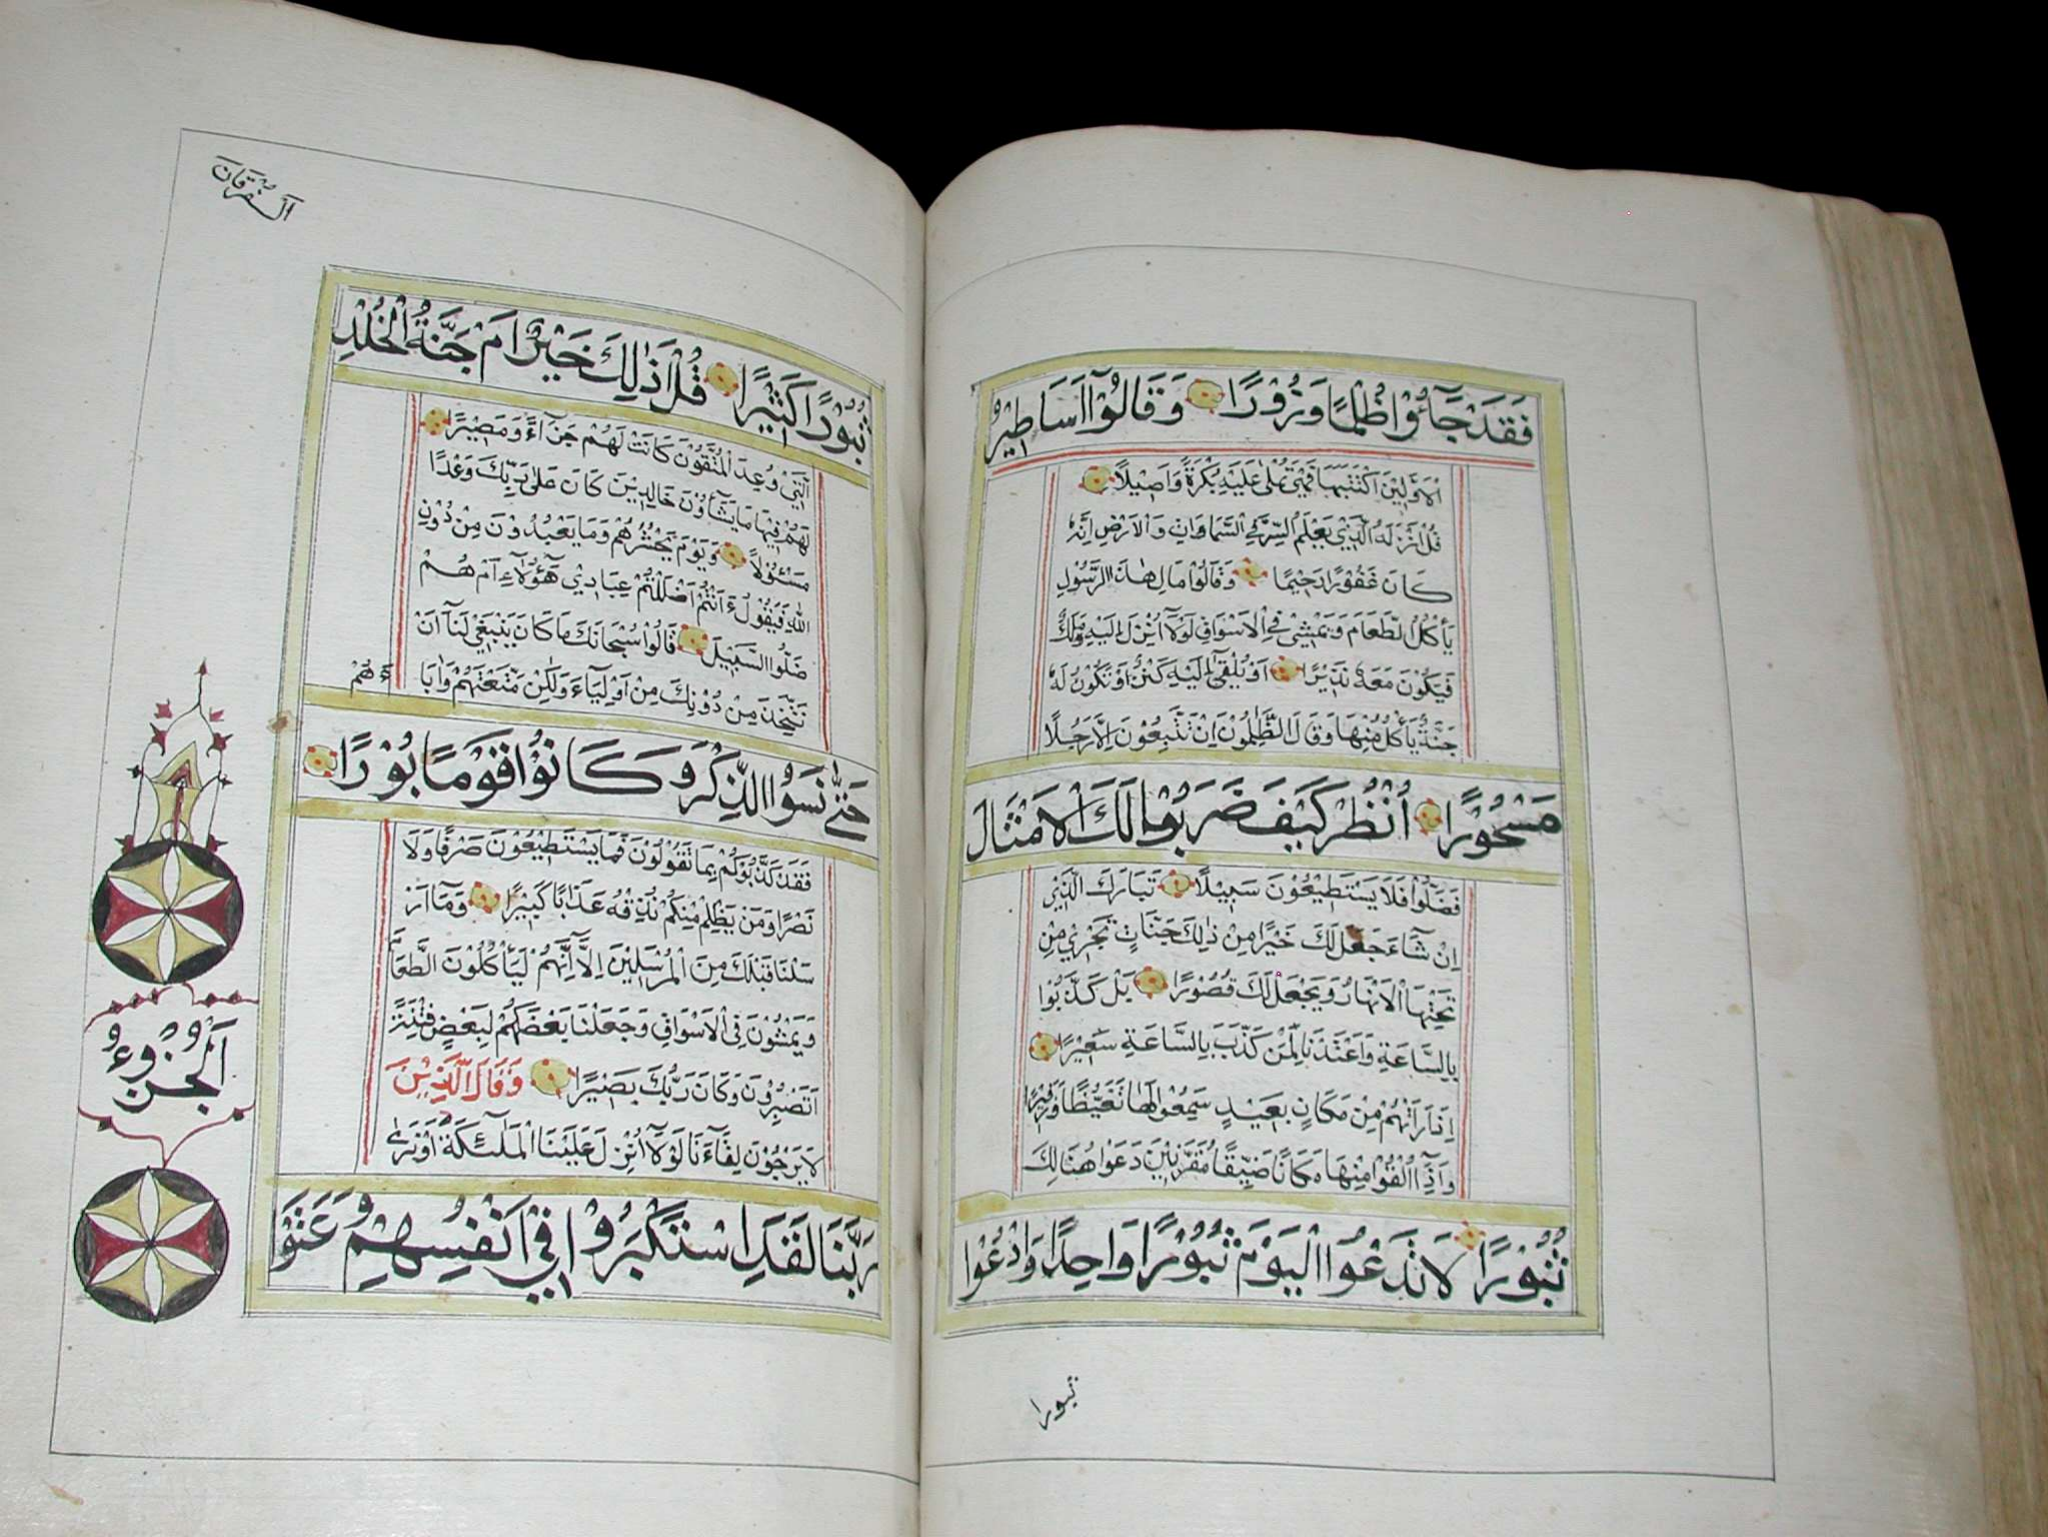 فَقَدْ جَآءُوْا ظُلْمًا وَزُوْرًا وَقَالُوْٓا اَسَاطِيْرُ
الْاَوَّلِيْنَ اكْتَتَبَهَا فَهِيَ تُمْلٰى عَلَيْهِ بُكْرَةً وَاَصِيْلًا
قُلْ اَنْزَلَهُ الَّذِيْ يَعْلَمُ السِّرَّ فِي السَّمَاوَاتِ وَالْاَرْضِ اِنَّهُ
كَانَ غَفُوْرًا رَحِيْمًا وَقَالُوْا مَالِ هٰذَا الرَّسُوْلِ
يَأْكُلُ الطَّعَامَ وَيَمْشِيْ فِي الْاَسْوَاقِ لَوْلَآ اُنْزِلَ اِلَيْهِ مَلَكٌ
فَيَكُوْنَ مَعَهُ نَذِيْرًا اَوْ يُلْقٰٓى اِلَيْهِ كَنْزٌ اَوْ تَكُوْنُ لَهُ
جَنَّةٌ يَأْكُلُ مِنْهَا وَقَالَ الظَّالِمُوْنَ اِنْ تَتَّبِعُوْنَ اِلَّا رَجُلًا
مَسْحُوْرًا اُنْظُرْ كَيْفَ ضَرَبُوْا لَكَ الْاَمْثَالَ
فَضَلُّوْا فَلَا يَسْتَطِيْعُوْنَ سَبِيْلًا تَبَارَكَ الَّذِيْٓ
اِنْ شَآءَ جَعَلَ لَكَ خَيْرًا مِنْ ذٰلِكَ جَنَّاتٍ تَجْرِيْ مِنْ
تَحْتِهَا الْاَنْهَارُ وَيَجْعَلْ لَكَ قُصُوْرًا بَلْ كَذَّبُوْا
بِالسَّاعَةِ وَاَعْتَدْنَا لِمَنْ كَذَّبَ بِالسَّاعَةِ سَعِيْرًا
اِذَا رَاَتْهُمْ مِنْ مَكَانٍ بَعِيْدٍ سَمِعُوْا لَهَا تَغَيُّظًا وَزَفِيْرًا
وَاِذَآ اُلْقُوْا مِنْهَا مَكَانًا ضَيِّقًا مُقَرَّنِيْنَ دَعَوْا هُنَالِكَ
ثُبُوْرًا لَا تَدْعُوا الْيَوْمَ ثُبُوْرًا وَاحِدًا وَادْعُوْا
ثبورا
اَلْفُرْقَانَ
ثُبُوْرًا كَثِيْرًا قُلْ اَذٰلِكَ خَيْرٌ اَمْ جَنَّةُ الْخُلْدِ
الَّتِيْ وُعِدَ الْمُتَّقُوْنَ كَانَتْ لَهُمْ جَزَآءً وَمَصِيْرًا
لَهُمْ فِيْهَا مَا يَشَآؤُنَ خَالِدِيْنَ كَانَ عَلٰى رَبِّكَ وَعْدًا
مَسْئُوْلًا وَيَوْمَ يَحْشُرُهُمْ وَمَا يَعْبُدُوْنَ مِنْ دُوْنِ
اللّٰهِ فَيَقُوْلُ ءَاَنْتُمْ اَضْلَلْتُمْ عِبَادِيْ هٰٓؤُلَآءِ اَمْ هُمْ
ضَلُّوا السَّبِيْلَ قَالُوْا سُبْحَانَكَ مَا كَانَ يَنْبَغِيْ لَنَآ اَنْ
نَتَّخِذَ مِنْ دُوْنِكَ مِنْ اَوْلِيَآءَ وَلٰكِنْ مَتَّعْتَهُمْ وَاٰبَا
ءَهُمْ
حَتّٰى نَسَوُا الذِّكْرَ وَكَانُوْا قَوْمًا بُوْرًا
فَقَدْ كَذَّبُوْكُمْ بِمَا تَقُوْلُوْنَ فَمَا يَسْتَطِيْعُوْنَ صَرْفًا وَلَا
نَصْرًا وَمَنْ يَظْلِمْ مِنْكُمْ نُذِقْهُ عَذَابًا كَبِيْرًا وَمَآ اَرْ
سَلْنَا قَبْلَكَ مِنَ الْمُرْسَلِيْنَ اِلَّآ اِنَّهُمْ لَيَأْكُلُوْنَ الطَّعَامَ
وَيَمْشُوْنَ فِي الْاَسْوَاقِ وَجَعَلْنَا بَعْضَكُمْ لِبَعْضٍ فِتْنَةً
اَتَصْبِرُوْنَ وَكَانَ رَبُّكَ بَصِيْرًا وَقَالَ الَّذِيْنَ
لَا يَرْجُوْنَ لِقَآءَنَا لَوْلَآ اُنْزِلَ عَلَيْنَا الْمَلٰٓئِكَةُ اَوْ نَرٰى
رَبَّنَا لَقَدِ اسْتَكْبَرُوْا فِيْٓ اَنْفُسِهِمْ وَعَتَوْ
اَلْجُزْوءُ